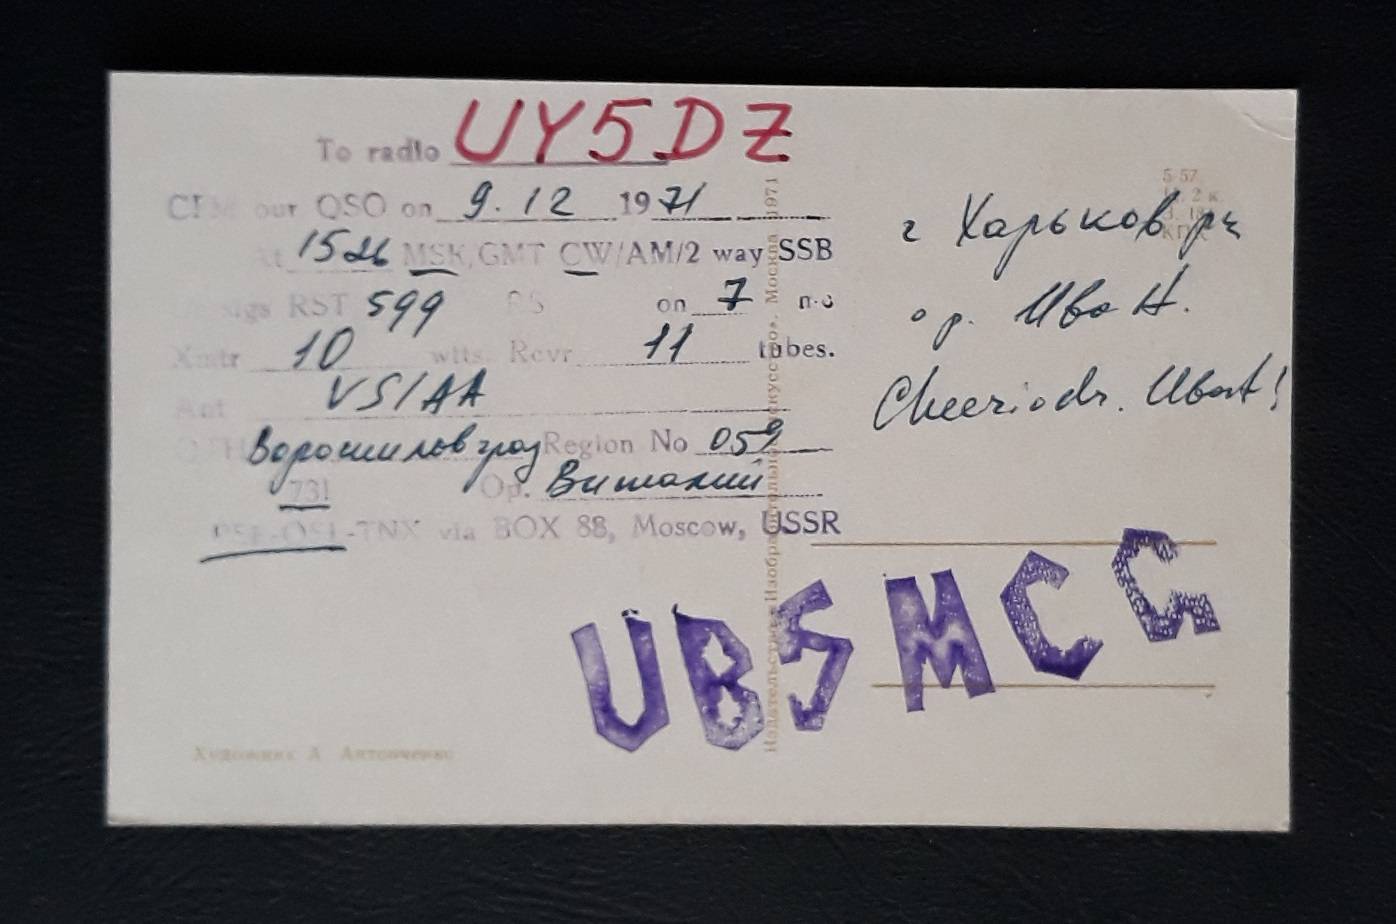 To radio UY5DZ
CFM our QSO on 9.12 1971
At 1526 MSK, GMT CW/AM/2 way SSB
sigs RST 599 RS on 7 mc
Xmtr 10 wtts. Rcvr 11 tubes.
Ant VS1AA
QTH Ворошиловград Region No 059
731 Op. Виталий
PSE-QSL-TNX via BOX 88, Moscow, USSR
г Харьков
ор. Ива Н.
Cheerio dr.
UB5MCG
Издательство «Изобразительное искусство». Москва 1971
5-57
Художник А